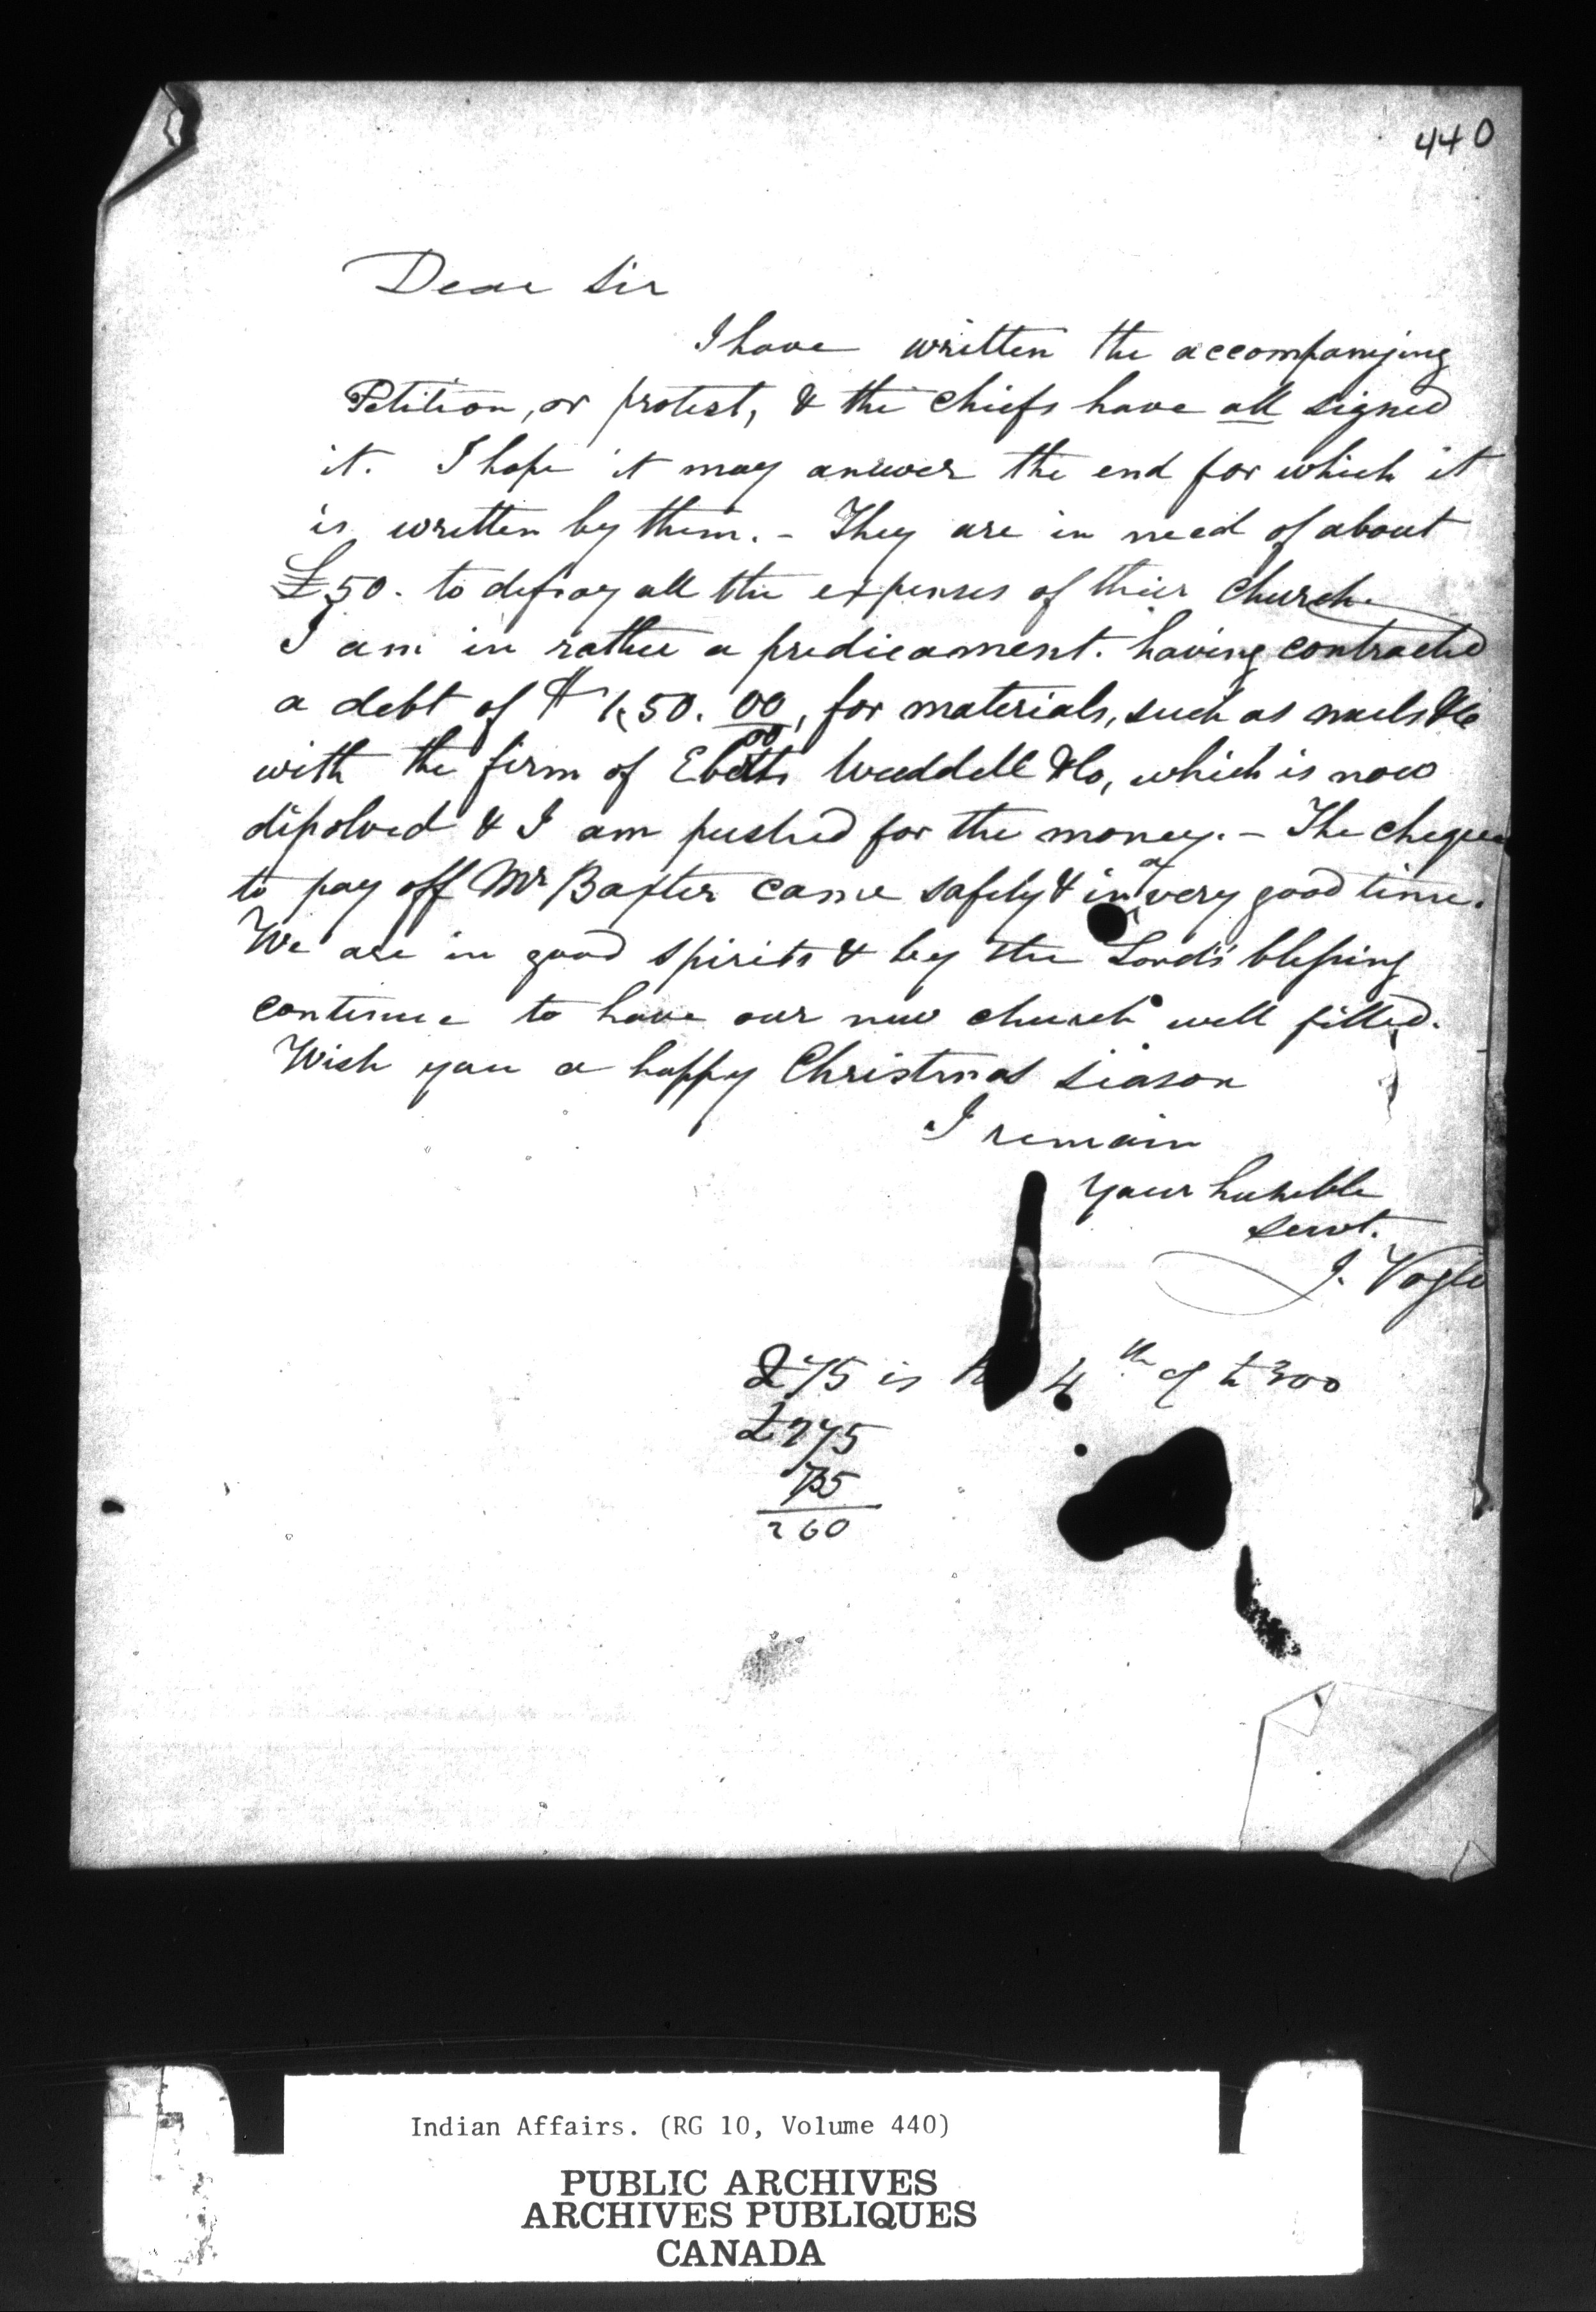 440
Dear Sir
I have written the accompanying
Petition, or protest, & the Chiefs have all signed
it. I hope it may answer the end for which it
is written by them. - They are in need of about
£50. to defray all the expenses of their Church.
I am in rather a predicament. having contracted
a debt of $ 150. 00/00, for materials, such as nails &c
with the firm of Ebetts Weddell & Co, which is now
dissolved & I am pushed for the money. - The cheque
to pay off Mr Baxter came safely & in a very good time.
We are in good spirits & by the Lord's blessing
continue to have our new church well filled.
Wish you a happy Christmas season
I remain
Your humble
servt.
J. Vogler
£75 is 4th of £300
£275
260
Indian Affairs. (RG 10, Volume 440)
PUBLIC ARCHIVES
ARCHIVES PUBLIQUES
CANADA